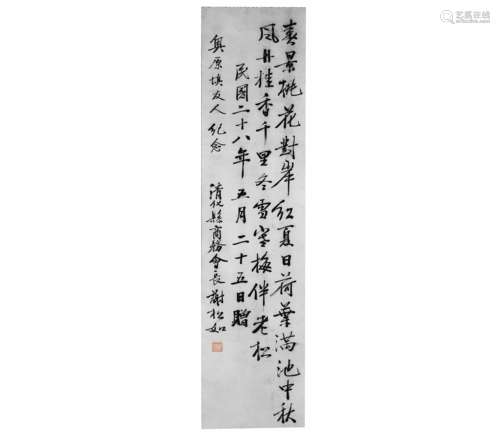 春景桃花對岸紅夏日荷葉滿池中秋
風丹桂香千里冬雪寒梅伴老松
民國二十八年五月二十五日贈
奧原填友人紀念
清化縣商務會長謝松如
艺狐在线